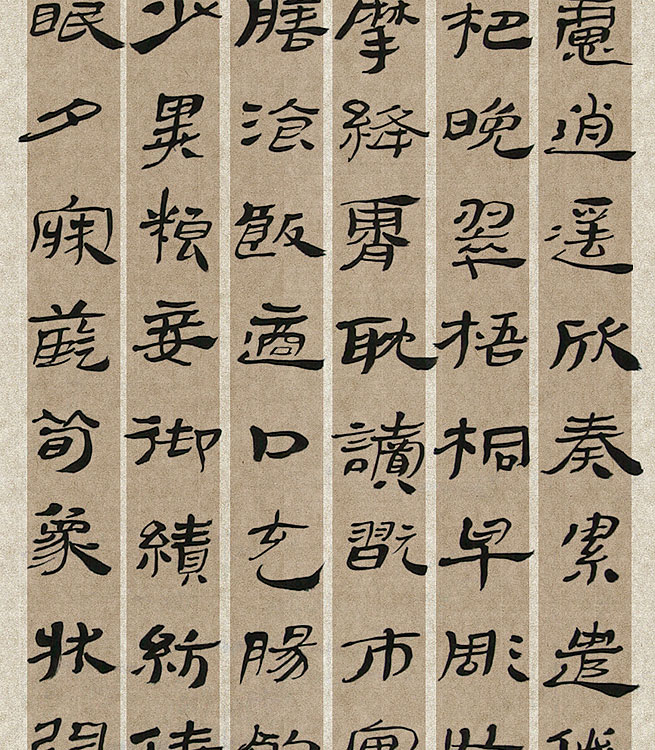 慮逍遥欣奏累遣
杷晚翠梧桐早彫
摩絳霄耽讀翫市寓
膳湌飯適口充腸飽
少異糧妾御績紡侍
眠夕寐藍筍象牀